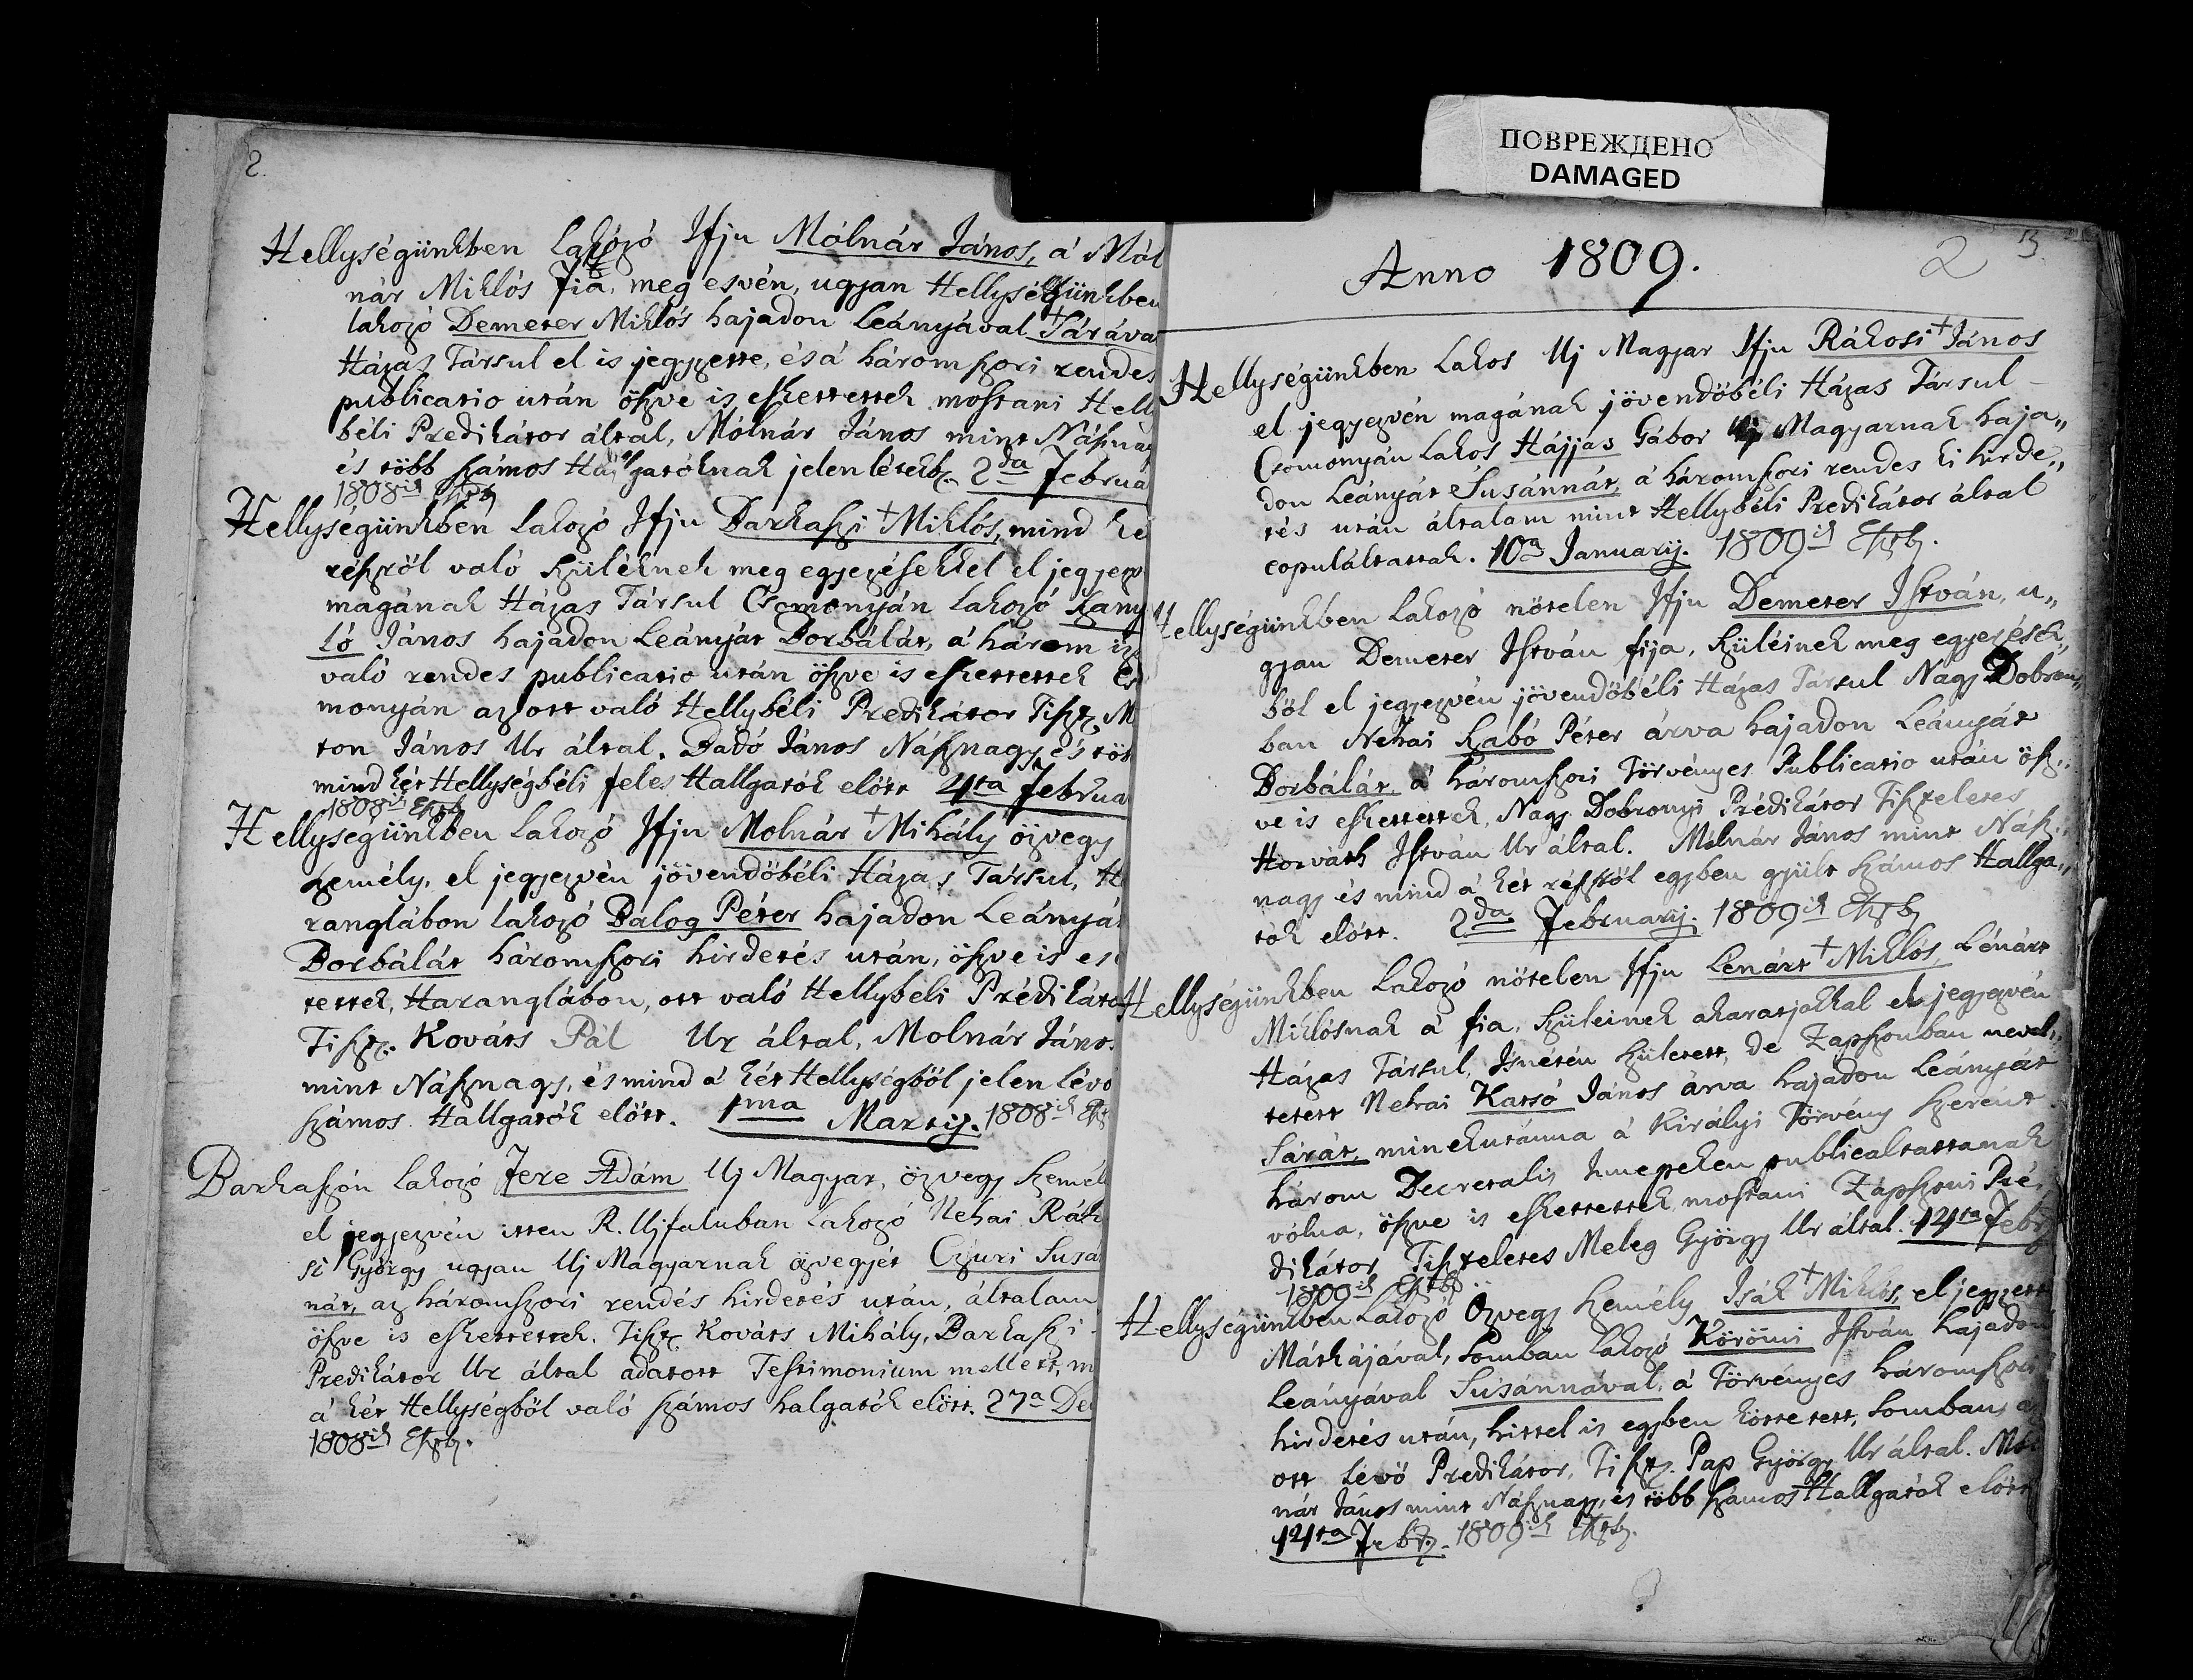 2.
Hellységünkben Lakozó Ifju Mólnár János, á Mól
nár Miklós Fia, meg esvén, ugyan Hellységünkben
lakozó Demeter Miklós hajadon Leányával Sárával
Házas Társul el is jegyzette, és á háromszori rendes
publicatio után öszve is eskettettek mostani Helly
béli Predikátor által, Mólnár János mint Násznagy
és több számos Hallgatóknak jelenlétekb. 2da Februa
1808ik Eszt
Hellységünkben lakozó Ifju Barkaszi Miklós, mind ké
részről való szüléknek meg egyezésekkel el jegyez
magának Házas Társul Csomonyán lakozó Kany
ló János hajadon Leányát Borbálát, á három iz
való rendes publicatio után öszve is eskettettek Cso
monyán az ott való Hellybéli Predikátor Tiszt. M
ton János Ur által. Badó János Násznagy és töb
mind két Hellységbéli jeles Hallgatók előtt 4ta Februa
1808ik Eszt
Hellységünkben Lakozó Ifju Molnár Mihály özvegy
személy, el jegyezvén jövendőbéli Házas Társul, Ha
ranglábon lakozó Balog Péter hajadon Leányát
Borbálát háromszori hirdetés után, öszve is es
tettek, Haranglábon, ott való Hellybéli Prédikáto
Tiszt. Kováts Pál Ur által, Molnár János
mint Násznagy, és mind á két Hellységből jelen lévő
számos Hallgatók előtt. 1ma Martij. 1808ik Eszt
Barkaszón lakozó Fere Ádám Uj Magyar, özvegy személ
el jegyezvén itten R. Ujfaluban Lakozó Néhai Ráko
si György ugyan Uj Magyarnak özvegyét Czuri Susa
nát, az háromszori rendés hirdetés után, általam
öszve is eskettettek. Tiszt. Kováts Mihály, Barkaszi
Predikátor Ur által adatott Testimonium mellett, m
á két Hellységből való számos halgatók előtt. 27a De
1808ik Eszt.
ПОВРЕЖДЕНО
DAMAGED
2 3
Anno 1809.
Hellységünkben Lakos Uj Magyar Ifju Rákosi János
el jegyezvén magának jövendőbéli Házas Társul
Csomonyán Lakos Hájjas Gábor Uj Magyarnak haja„
don Leányát Susánnát, á háromszori rendes ki hirde„
tés után általam mint Hellybéli Predikátor által
copuláltattak. 10a Januarij. 1809ik Eszt.
Hellységünkben Lakozó nötelen Ifju Demeter István, u„
gyan Demeter István fija, szüléinek meg egyezések„
ből el jegyezvén jövendőbéli Házas Társul Nagy Dobron„
ban Nehai Szabó Péter árva hajadon Leányát
Borbálát á háromszori Törvényes Publicatio után ösz„
ve is eskettettek, Nagy Dobronyi Prédikátor Tiszteletes
Horváth István Ur által. Mólnár János mint Nász„
nagy és mind á két részről egyben gyült számos Hallga„
tók előtt. 2da Februarij. 1809ik Eszt
Hellységünkben Lakozó nötelen Ifju Lenárt Miklós, Lénárt
Miklósnak á fia, szüleinek akaratjokkal el jegyezvén
Házas Társul, Isnétén született, de Zapszonban nevel„
tetett Nehai Katsó János árva hajadon Leányát
Sárát, minekutánna á Királyi Törvény szerént
három Decretalis Innepeken publicaltattanak
vólna, öszve is eskettettek mostani Zápszoni Pré„
dikátor Tiszteletes Meleg György Ur által. 14ta Febr
1809ik Eszt
Hellységünkben Lakozó Özvegy személy Isák Miklós, el jegyzett
Mátkájával, Somban lakozó Körömi István hajadon
Leányával Susánnával, á Törvényes háromszori
hirdetés után, hittel is egyben köttetett, Somban, a
ott lévő Predikátor, Tiszt. Pap György Ur által. Mól
nár János mint Násznagy, és több számos Hallgatók előtt
14ta Febr. 1809ik Eszt.